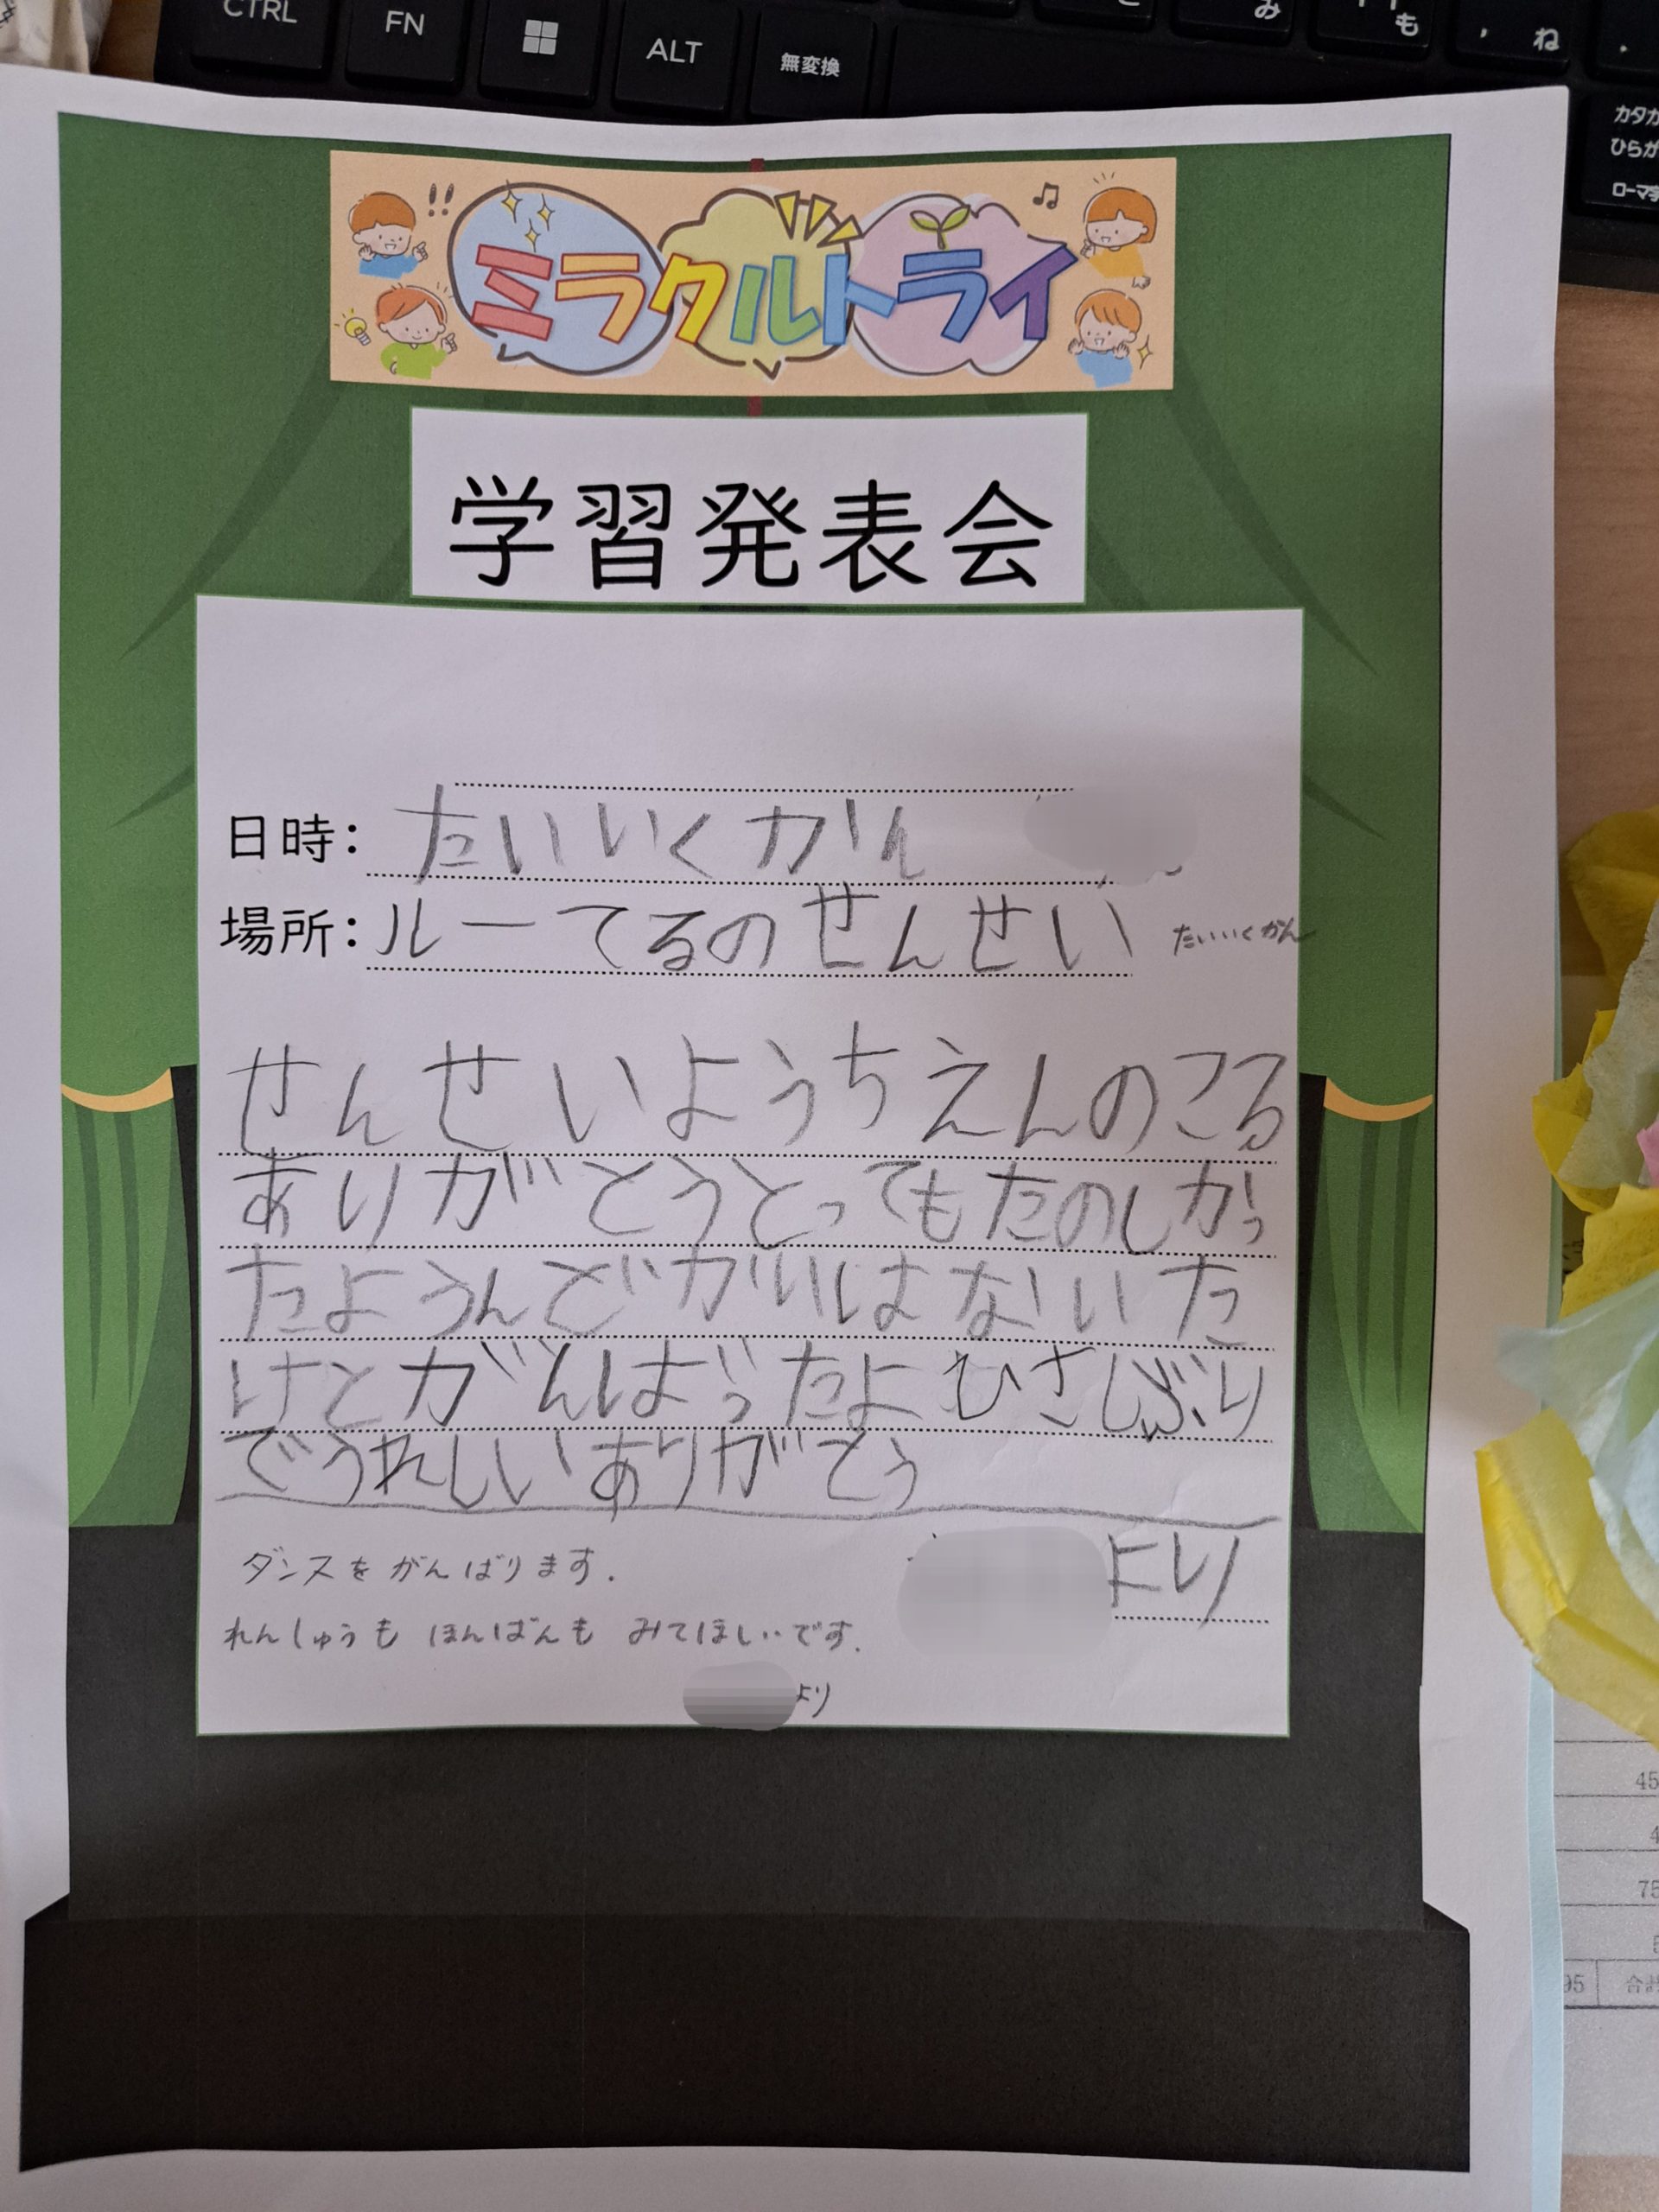 CTRL
FN
ALT
無変換
み
も
, ね
カタカ
ひらが
ローマ字
!!
ミラクルトライ
学習発表会
日時: たいいくかん
場所: ルーてるのせんせい
たいいくかん
せんせいようちえんのころ
ありがとうとってもたのしかっ
たようんどがいはないた
けとがんばったよひさしぶり
でうれしいありがとう
より
ダンスをがんばります.
れんしゅうも ほんばんも みてほしいです.
より
45
4
75
5
95 合計